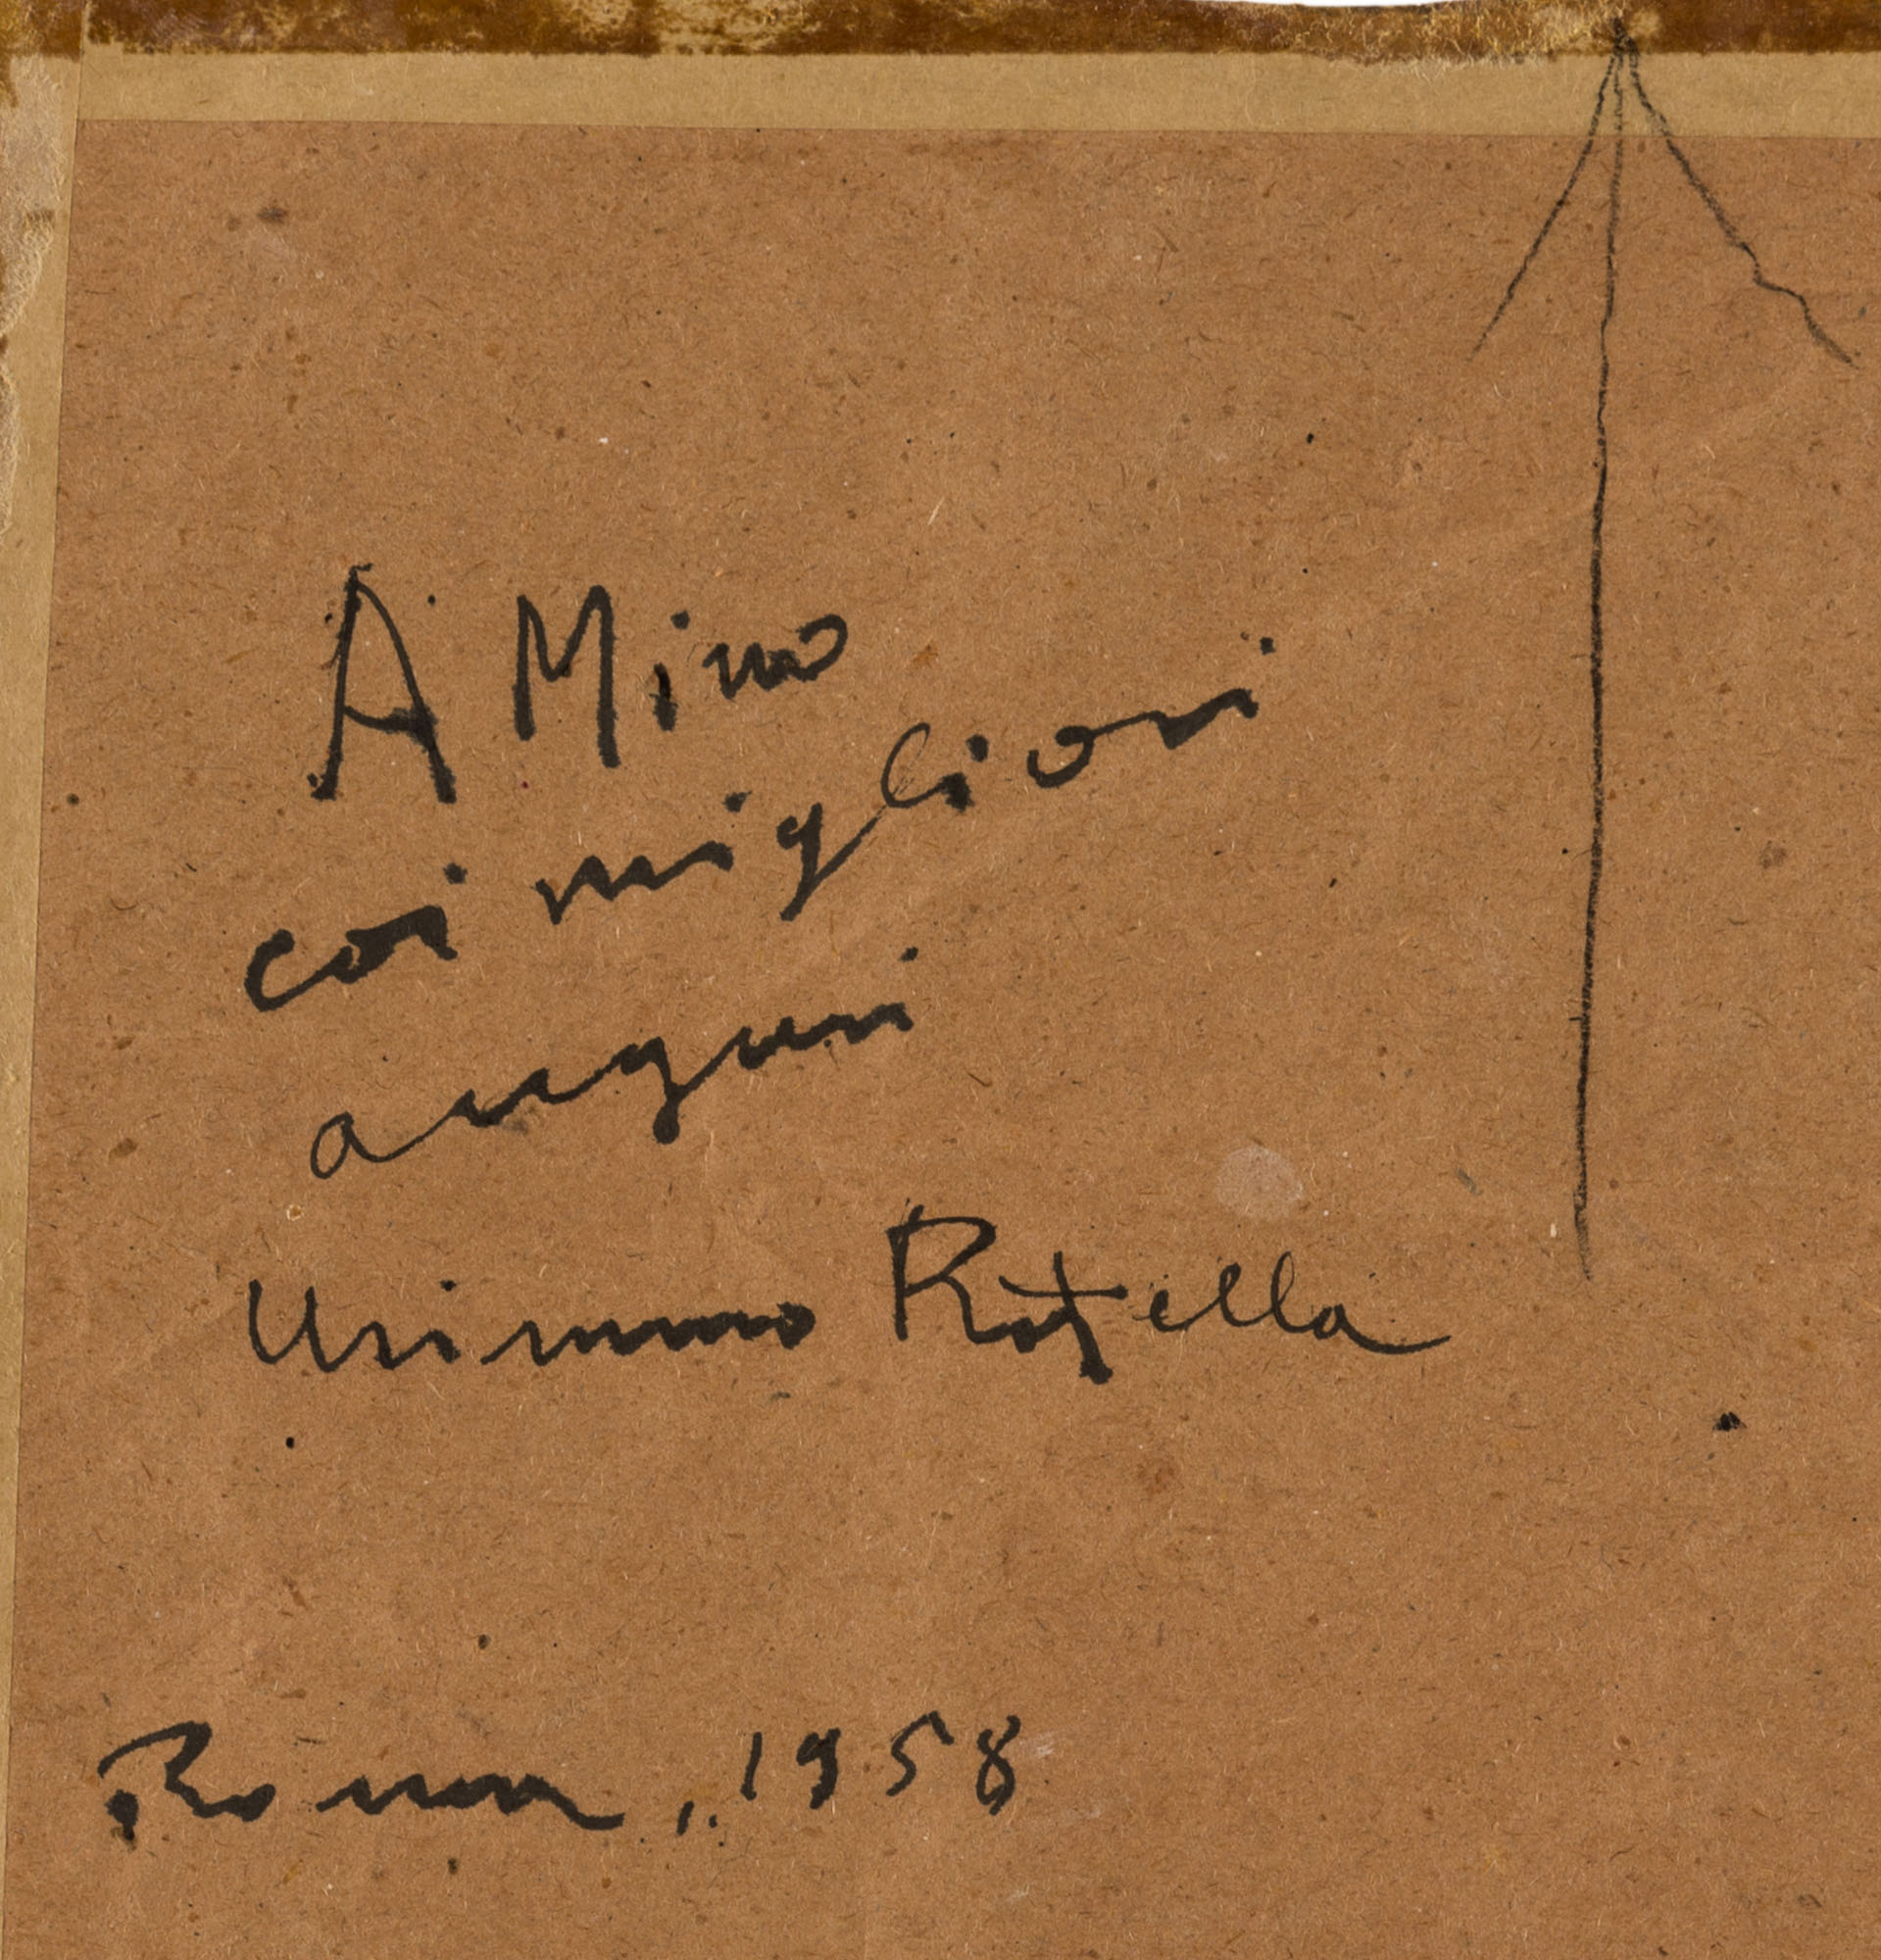 A Mino
coi migliori
auguri
Mimmo Rotella
Roma, 1958